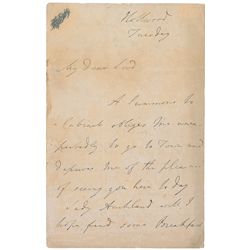 Hollwood
Tuesday
My dear Lord
A Summons to
a Cabinet obliges me unex-
pectedly to go to Town and
deprives me of the pleasure
of seeing you here to day
Lady Auckland will I
hope find some Breakfast